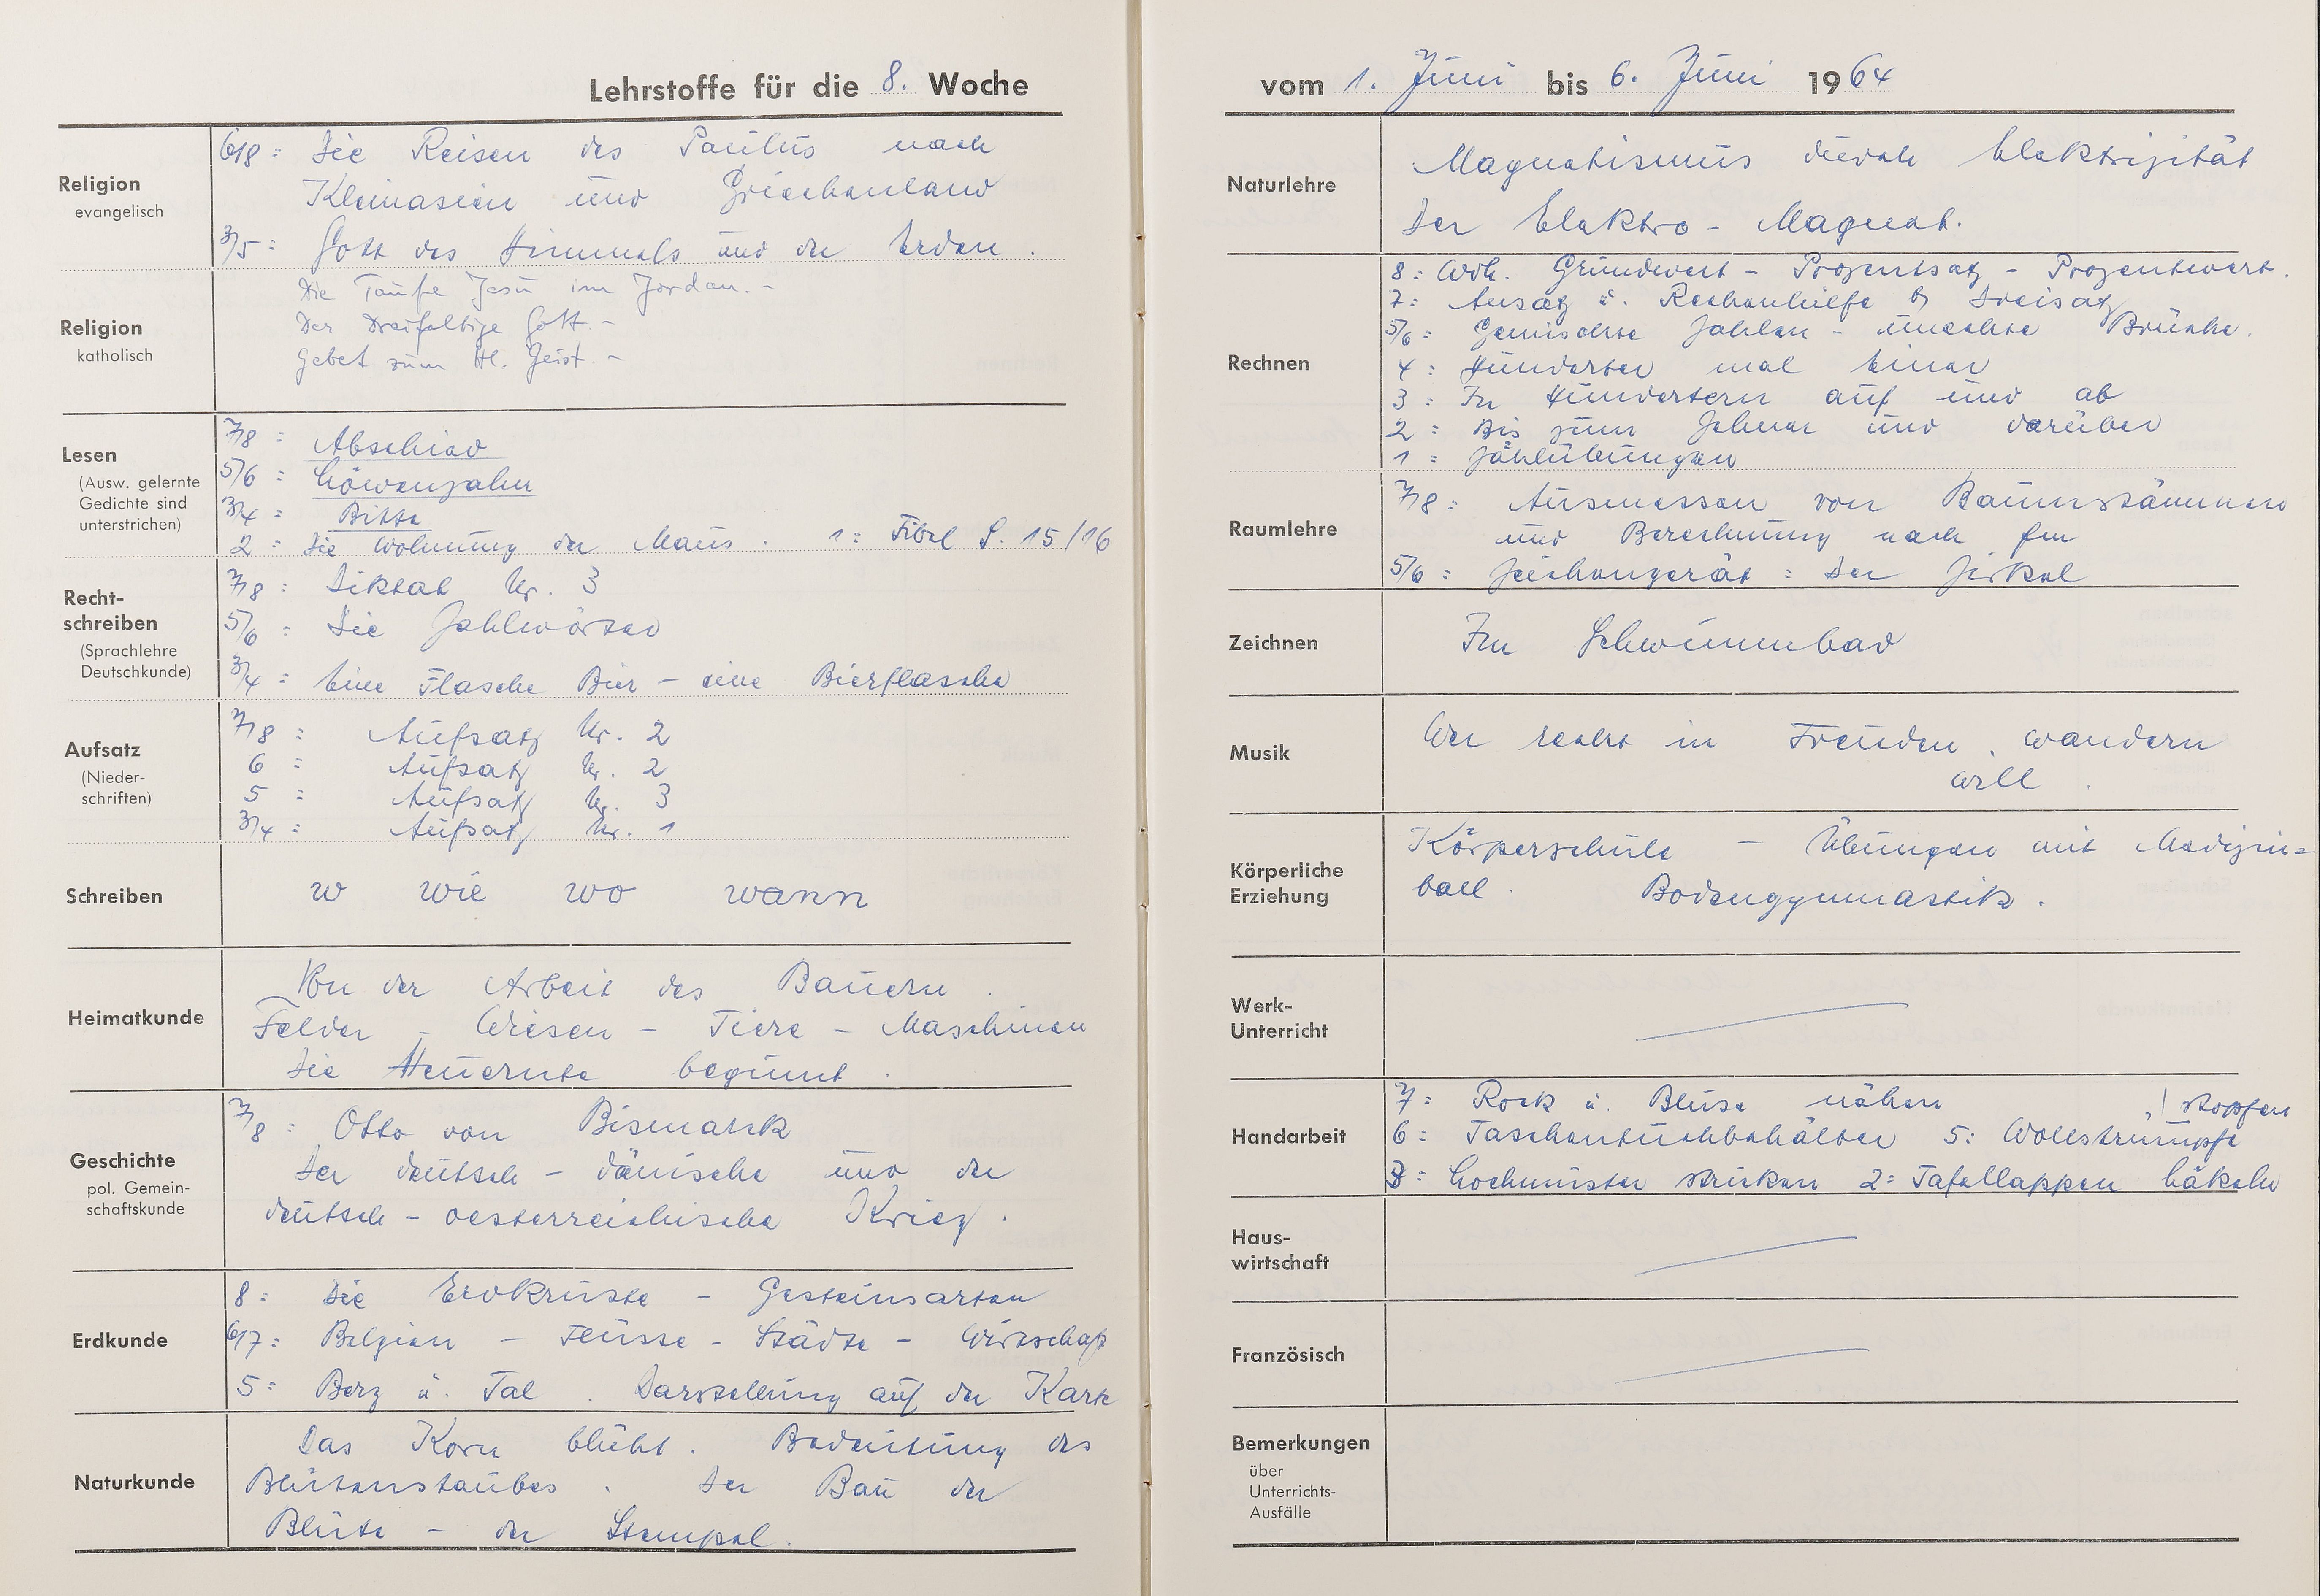 Lehrstoffe für die 8. Woche
Religion
evangelisch
6/8: Die Reisen des Paulus nach
Kleinasien und Griechenland
3/5: Gott des Himmels und der Erden.
Religion
katholisch
Die Taufe Jesu im Jordan. -
Der Dreifaltige Gott. -
Gebet zum Hl. Geist. -
Lesen
(Ausw. gelernte
Gedichte sind
unterstrichen)
7/8: Abschied
5/6: Löwenzahn
3/4: Bitte
2: Die Wohnung der Maus. 1: Fibel S. 15/16
Recht-
schreiben
(Sprachlehre
Deutschkunde)
7/8: Diktat Nr. 3
5/6: Die Zahlwörter
3/4: Eine Flasche Bier - eine Bierflasche
Aufsatz
(Nieder-
schriften)
7/8: Aufsatz Nr. 2
6: Aufsatz Nr. 2
5: Aufsatz Nr. 3
3/4: Aufsatz Nr. 1
Schreiben
w wie wo wann
Heimatkunde
Von der Arbeit des Bauern.
Felder - Wiesen - Tiere - Maschinen
Die Heuernte beginnt.
Geschichte
pol. Gemein-
schaftskunde
7/8: Otto von Bismarck
Der deutsch-dänische und der
deutsch-oesterreichische Krieg.
Erdkunde
8: Die Erdkruste - Gesteinsarten
6/7: Belgien - Flüsse - Städte - Wirtschaft
5: Berg u. Tal. Darstellung auf der Karte
Naturkunde
Das Korn blüht. Bedeutung des
Blütenstaubes. Der Bau der
Blüte - der Stempel.
vom 1. Juni bis 6. Juni 1964
Naturlehre
Magnetismus durch Elektrizität
Der Elektro-Magnet.
Rechnen
8: Wdh. Grundwert - Prozentsatz - Prozentwert.
7: Ansatz u. Rechenhilfe b. Dreisatz
5/6: Gemischte Zahlen - unechte Brüche.
4: Hunderter mal Einer
3: In Hundertern auf und ab
2: Bis zum Zehner und darüber
1: Zählübungen
Raumlehre
7/8: Ausmessen von Baumstämmen
und Berechnung nach fm
5/6: Zeichengerät: Der Zirkel
Zeichnen
Im Schwimmbad
Musik
Wer recht in Freuden wandern
will.
Körperliche
Erziehung
Körperschule - Übungen mit Medizin=
ball. Bodengymnastik.
Werk-
Unterricht
Handarbeit
7: Rock u. Bluse nähen
stopfen
6: Taschentuchbehälter 5: Wollstrümpfe
3: Lochmuster stricken 2: Tafellappen häkeln
Haus-
wirtschaft
Französisch
Bemerkungen
über
Unterrichts-
Ausfälle